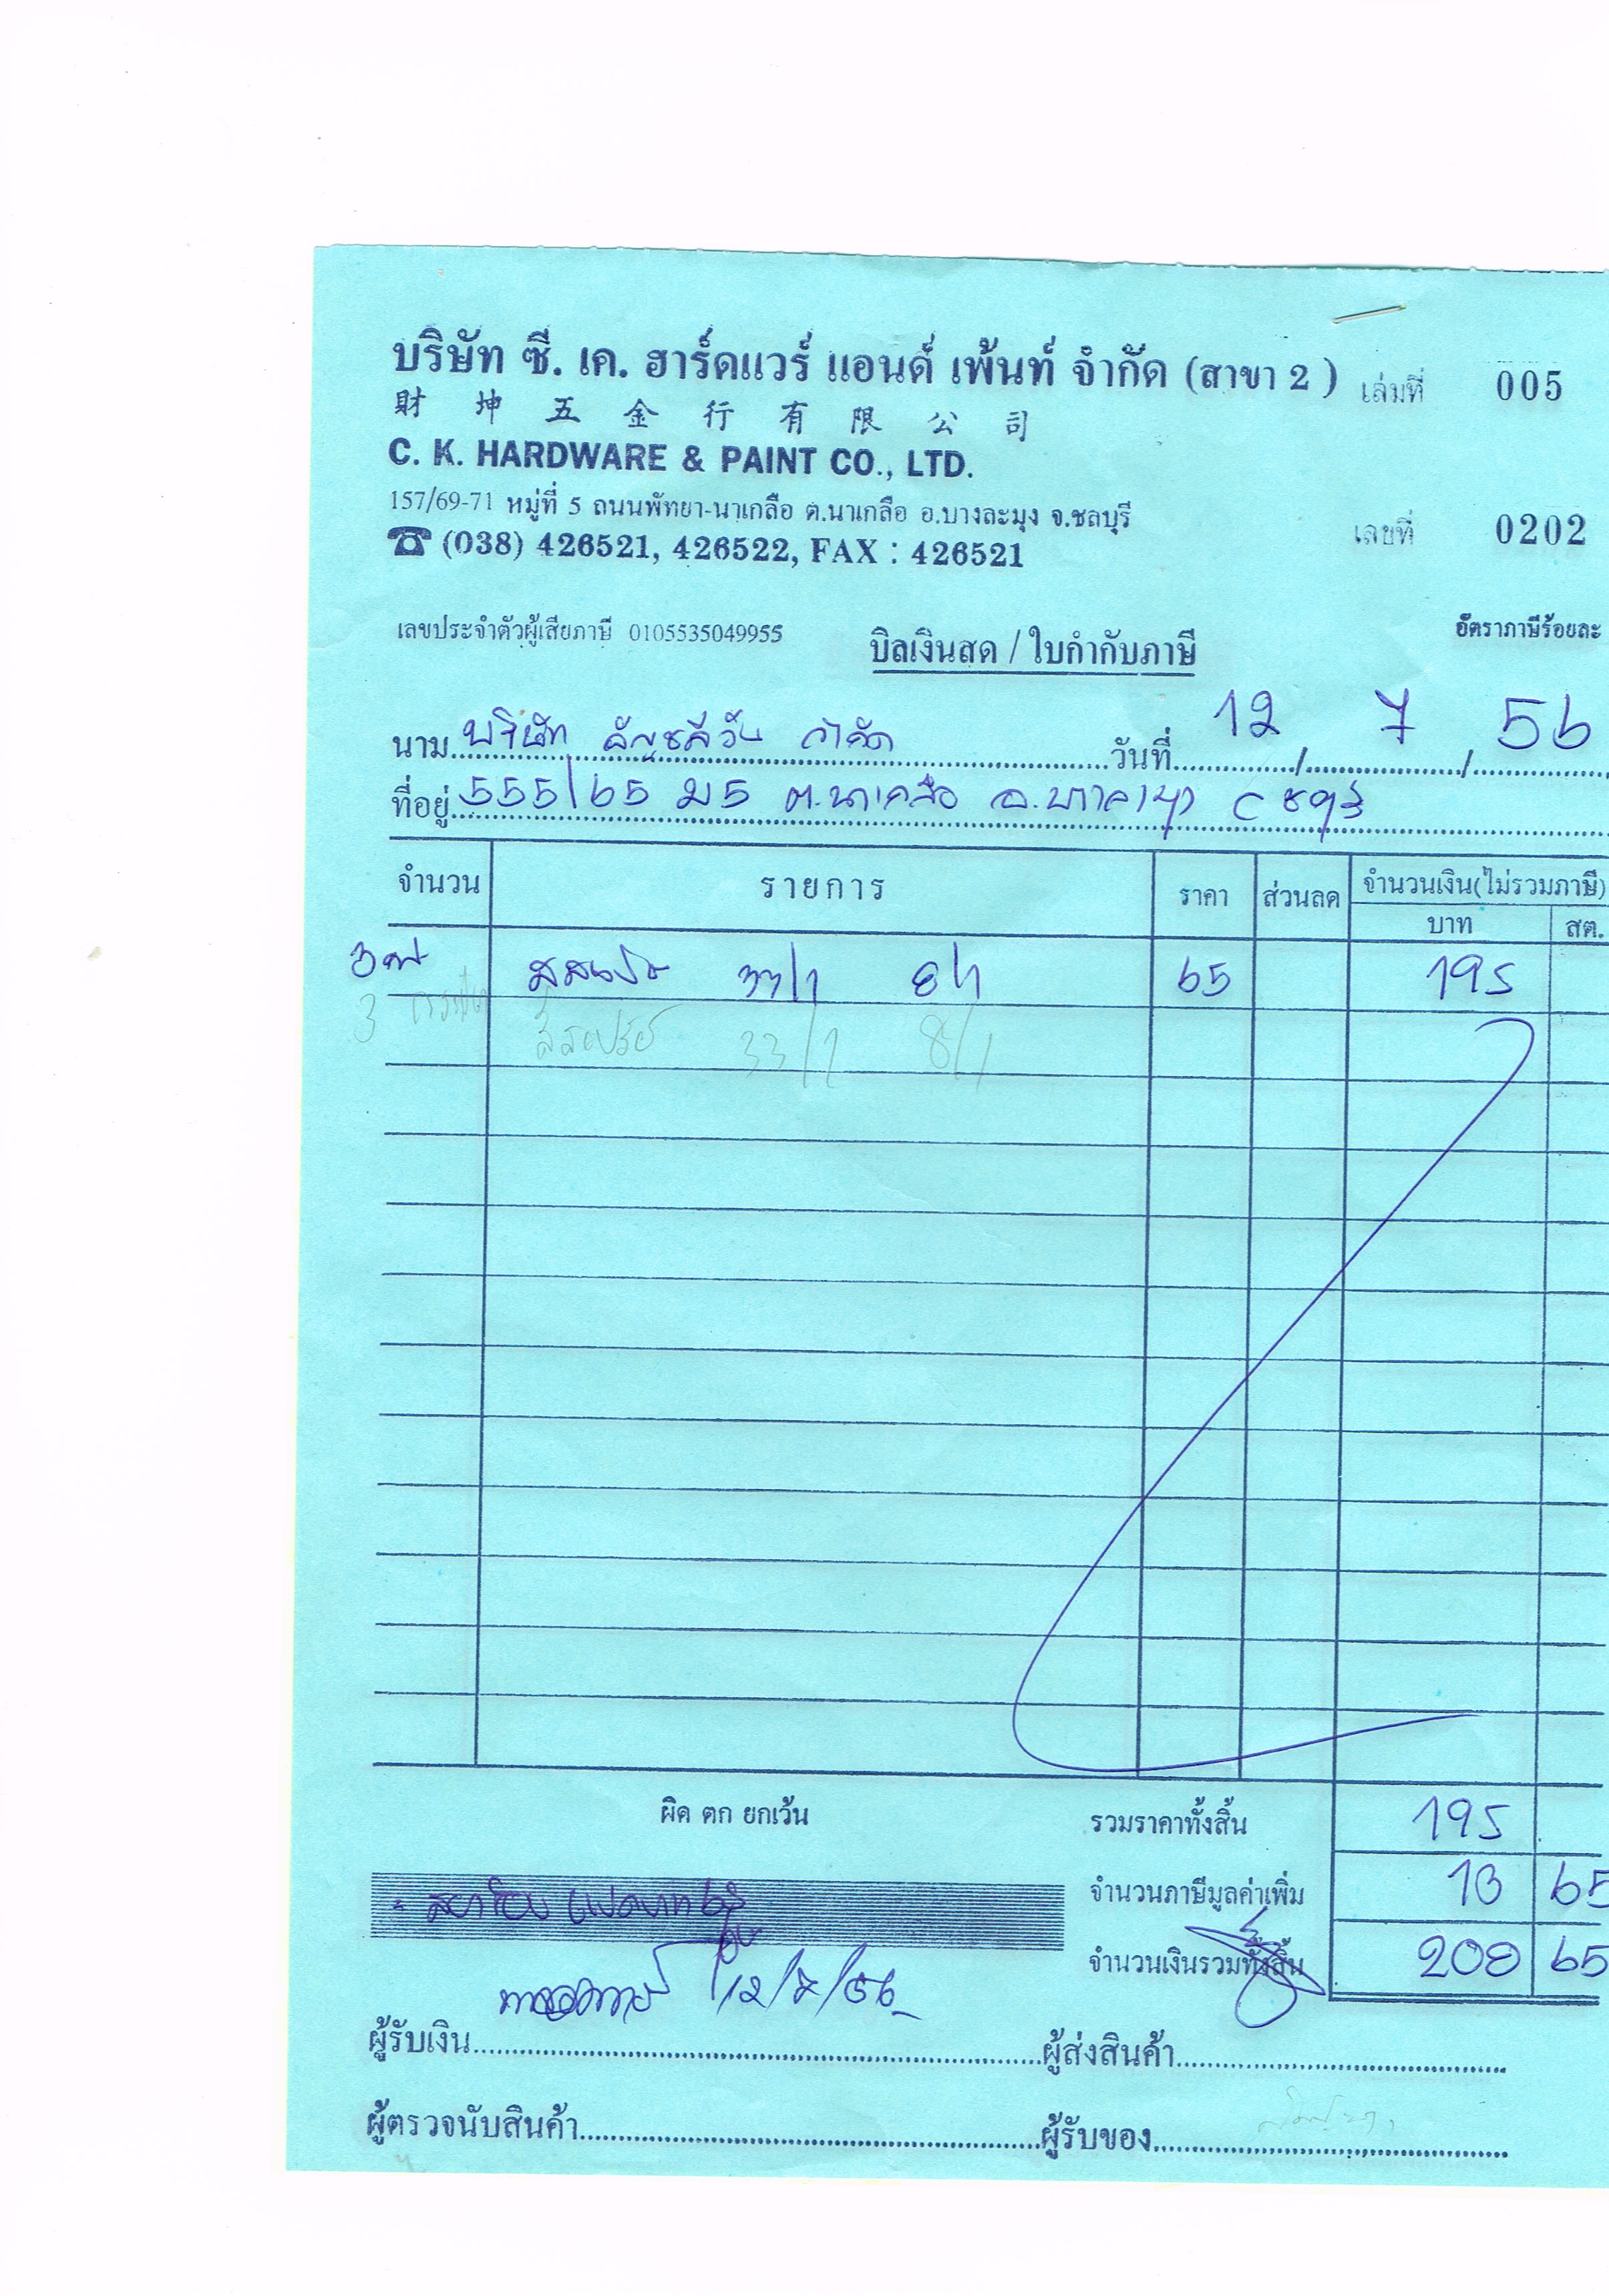 บริษัท ซี. เค. ฮาร์ดแวร์ แอนด์ เพ้นท์ จำกัด (สาขา 2 ) เล่มที่ 005
財 坤 五 金 行 有 限 公 司
C. K. HARDWARE & PAINT CO., LTD.
157/69-71 หมู่ที่ 5 ถนนพัทยา-นาเกลือ ต.นาเกลือ อ.บางละมุง จ.ชลบุรี
☎ (038) 426521, 426522, FAX : 426521
เลขที่ 0202
เลขประจำตัวผู้เสียภาษี 0105535049955
บิลเงินสด / ใบกำกับภาษี
อัตราภาษีร้อยละ
นาม บริษัท จำกัด วันที่ 12 / 7 / 56
ที่อยู่ 555/65 ม5 ต.นาเกลือ อ.บางละมุง
จำนวน รายการ ราคา ส่วนลด จำนวนเงิน(ไม่รวมภาษี)
บาท สต.
3 สีสเปรย์ 33/1 8/1 65 195
3 กระป๋อง สีสเปรย์ 33/1 8/1
ผิด ตก ยกเว้น รวมราคาทั้งสิ้น 195
จำนวนภาษีมูลค่าเพิ่ม 13 65
จำนวนเงินรวมทั้งสิ้น 208 65
12/7/56
ผู้รับเงิน ผู้ส่งสินค้า
ผู้ตรวจนับสินค้า ผู้รับของ